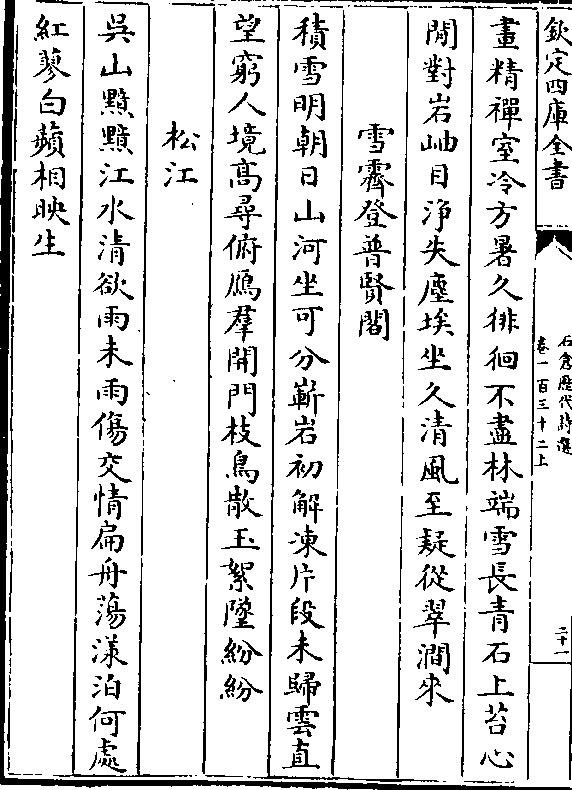 欽定四庫全書
石倉歷代詩選
卷一百三十二上
二十一
畫精禪室冷方暑久徘徊不盡林端雪長青石上苔心
閒對岩岫目淨失塵埃坐久清風至疑從翠澗來
雪霽登普賢閣
積雪明朝日山河坐可分嶄岩初解凍片段未歸雲直
望窮人境髙尋俯鴈羣開門枝鳥散玉絮墮紛紛
松江
吳山黯黯江水清欲雨未雨傷交情扁舟蕩漾泊何處
紅蓼白蘋相映生